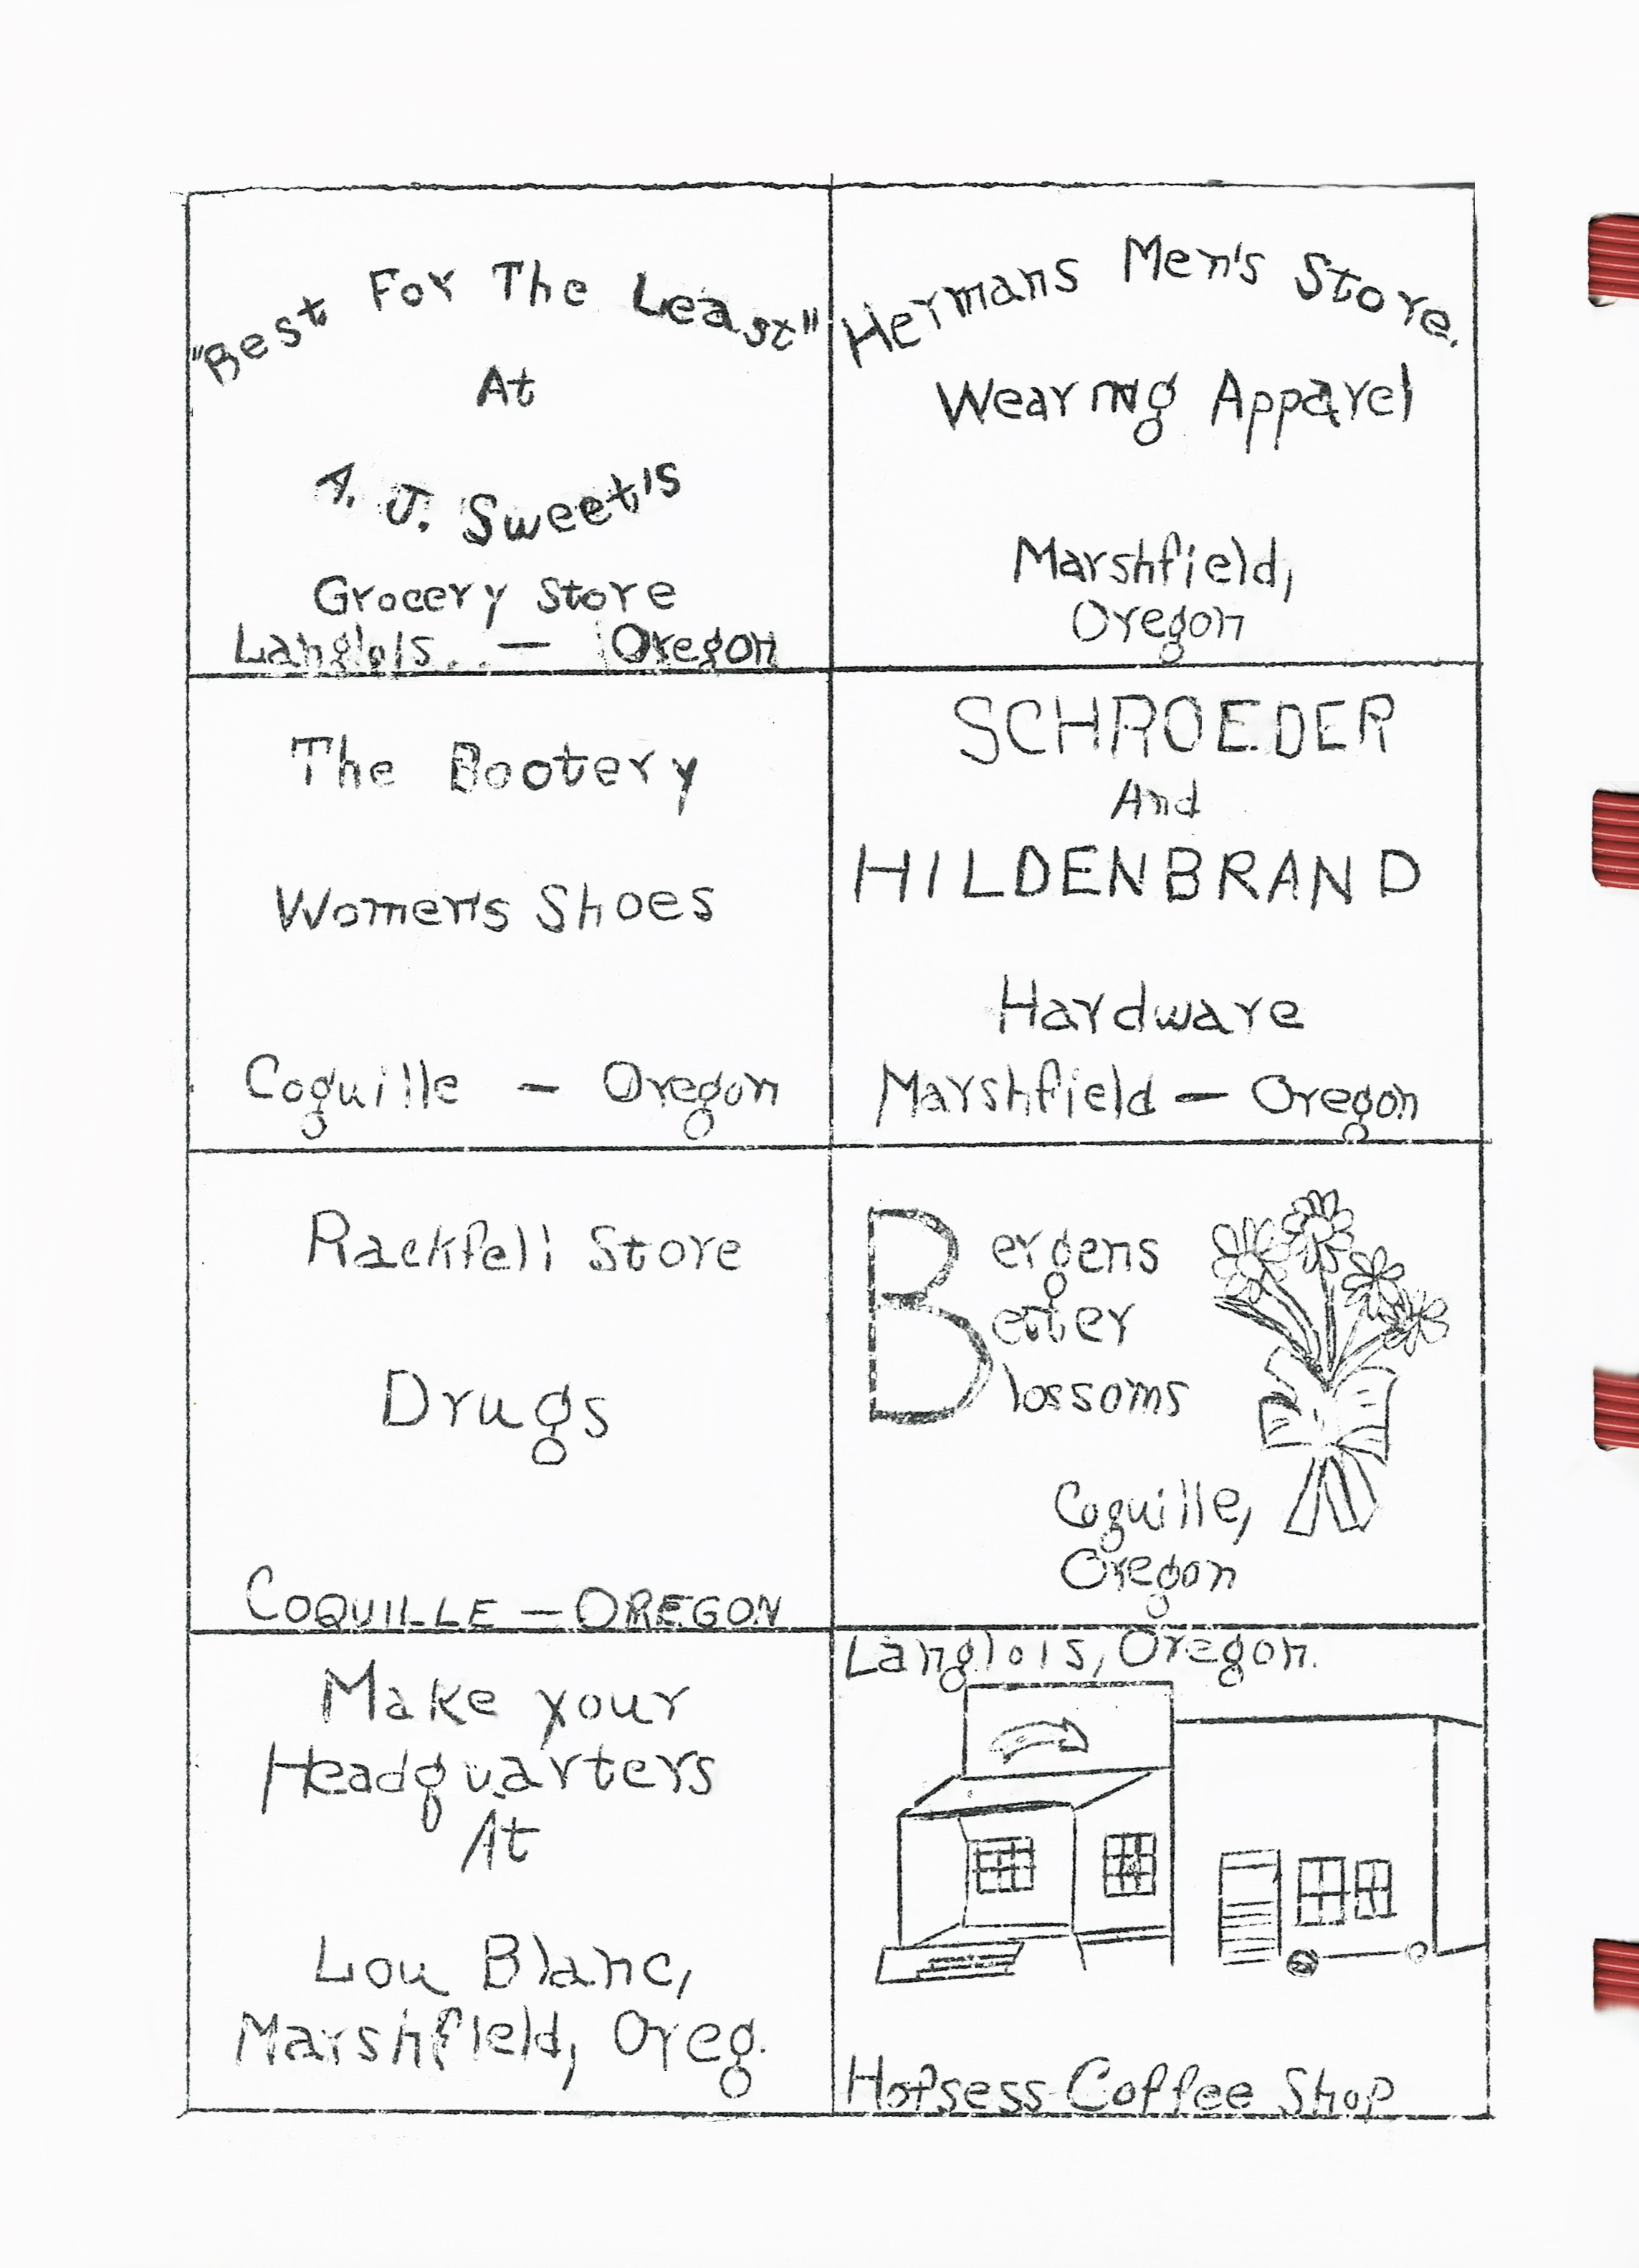 "Best For The Least"
At
A. J. Sweet's
Grocery Store
Langlois - Oregon
Hermans Men's Store.
Wearing Apparel
Marshfield,
Oregon
The Bootery
Women's Shoes
Coquille - Oregon
SCHROEDER
And
HILDENBRAND
Hardware
Marshfield - Oregon
Rackfell Store
Drugs
COQUILLE - OREGON
Bergens
Better
Blossoms
Coquille,
Oregon
Make your
Headquarters
At
Lou Blanc,
Marshfield, Oreg.
Langlois, Oregon.
Hotsess Coffee Shop